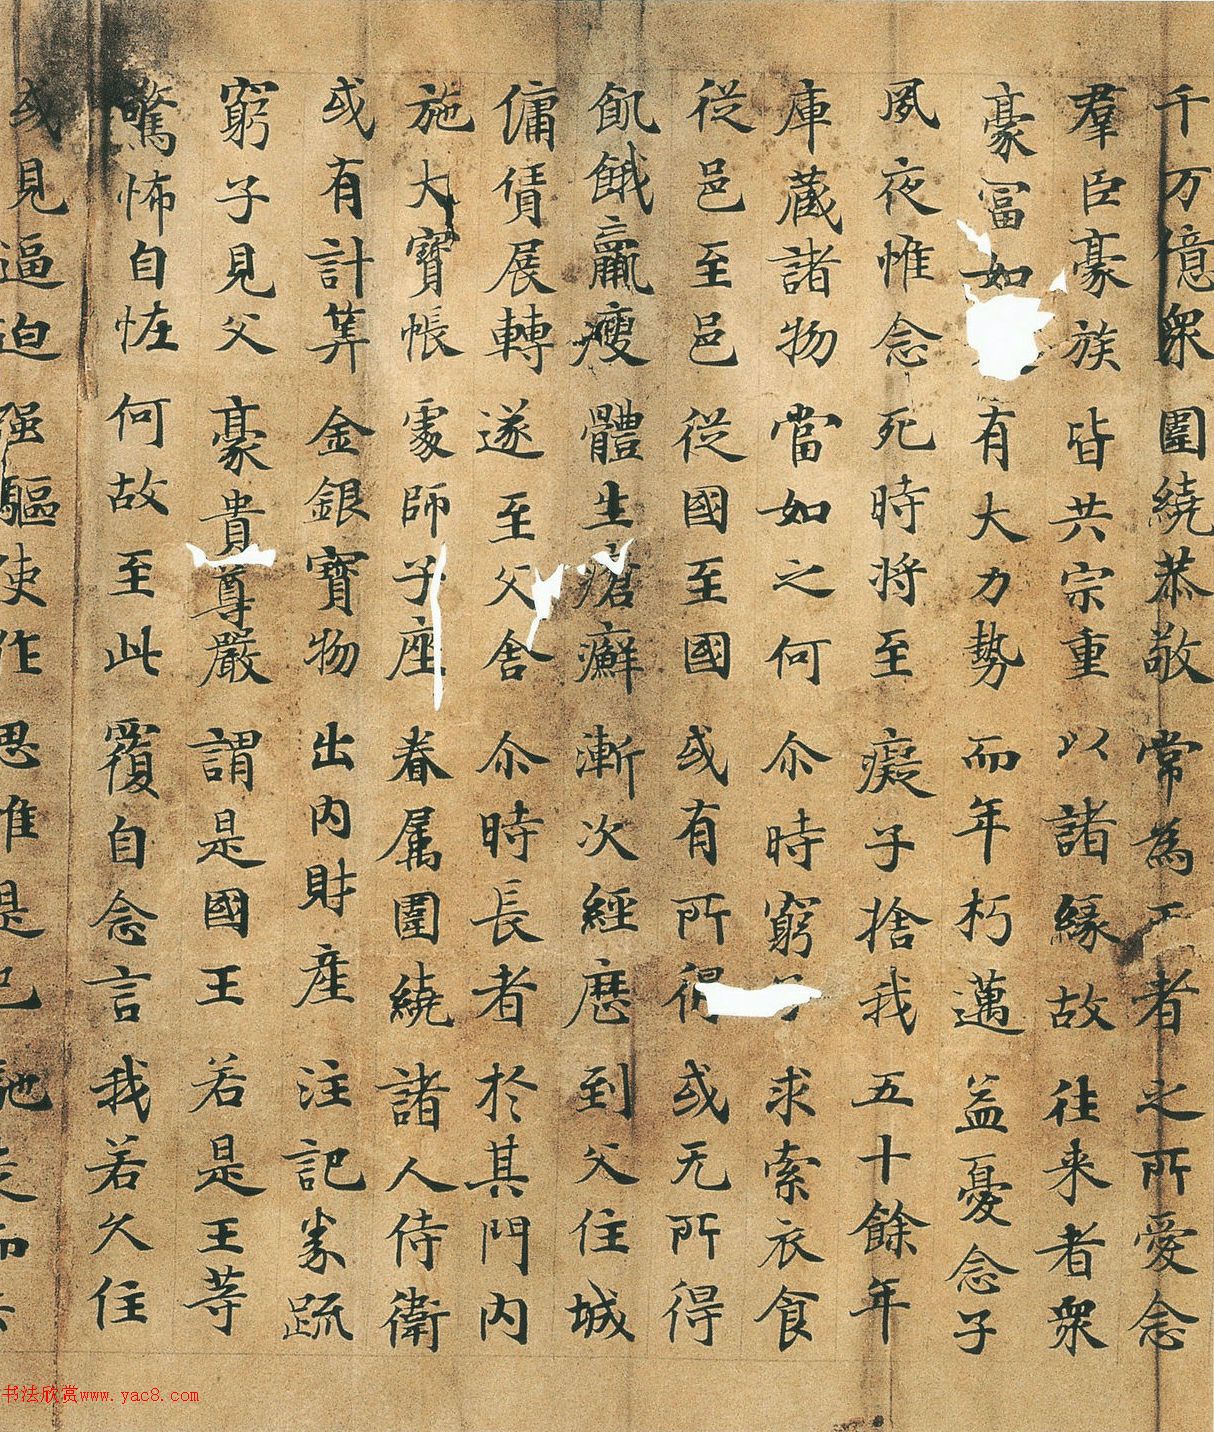 千万億衆 圍繞恭敬 常為王者 之所愛念
羣臣豪族 皆共宗重 以諸緣故 往来者衆
豪冨如 有大力勢 而年朽邁 益憂念子
夙夜惟念 死時将至 癡子捨我 五十餘年
庫藏諸物 當如之何 尒時窮 求索衣食
從邑至邑 從國至國 或有所得 或无所得
飢餓羸瘦 體生瘡癬 漸次經歷 到父住城
傭賃展轉 遂至父舍 尒時長者 於其門内
施大寶帳 處師子座 眷属圍繞 諸人侍衛
或有計筭 金銀寶物 出内財産 注記券疏
窮子見父 豪貴尊嚴 謂是國王 若是王等
驚怖自怪 何故至此 覆自念言 我若久住
或見逼迫 强驅使作 思惟是已 馳走而
书法欣赏www.yac8.com